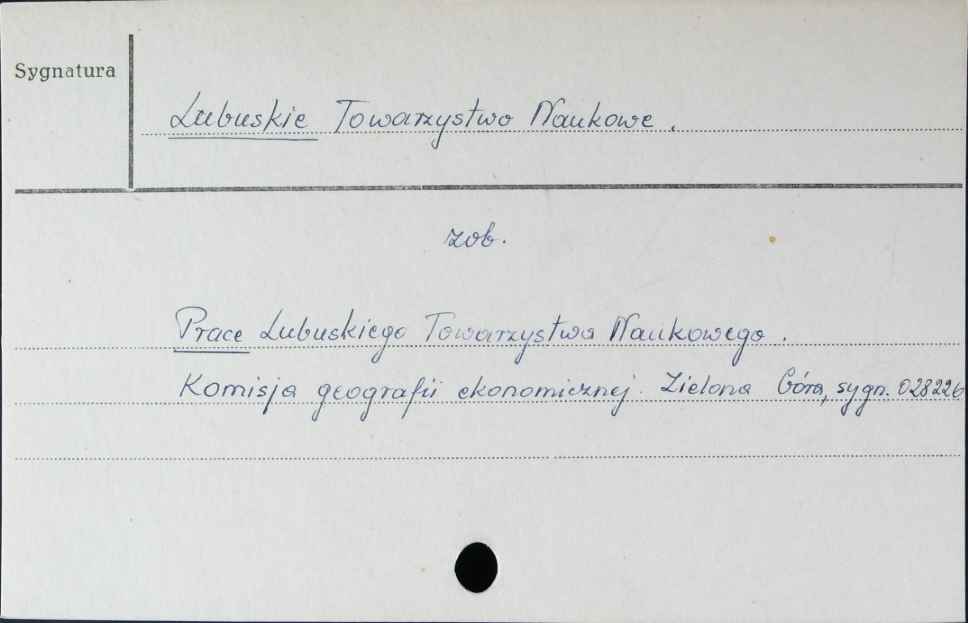 Sygnatura
Lubuskie Towarzystwo Naukowe.
zob.
Prace Lubuskiego Towarzystwa Naukowego.
Komisja geografii ekonomicznej. Zielona Góra, sygn. 028226